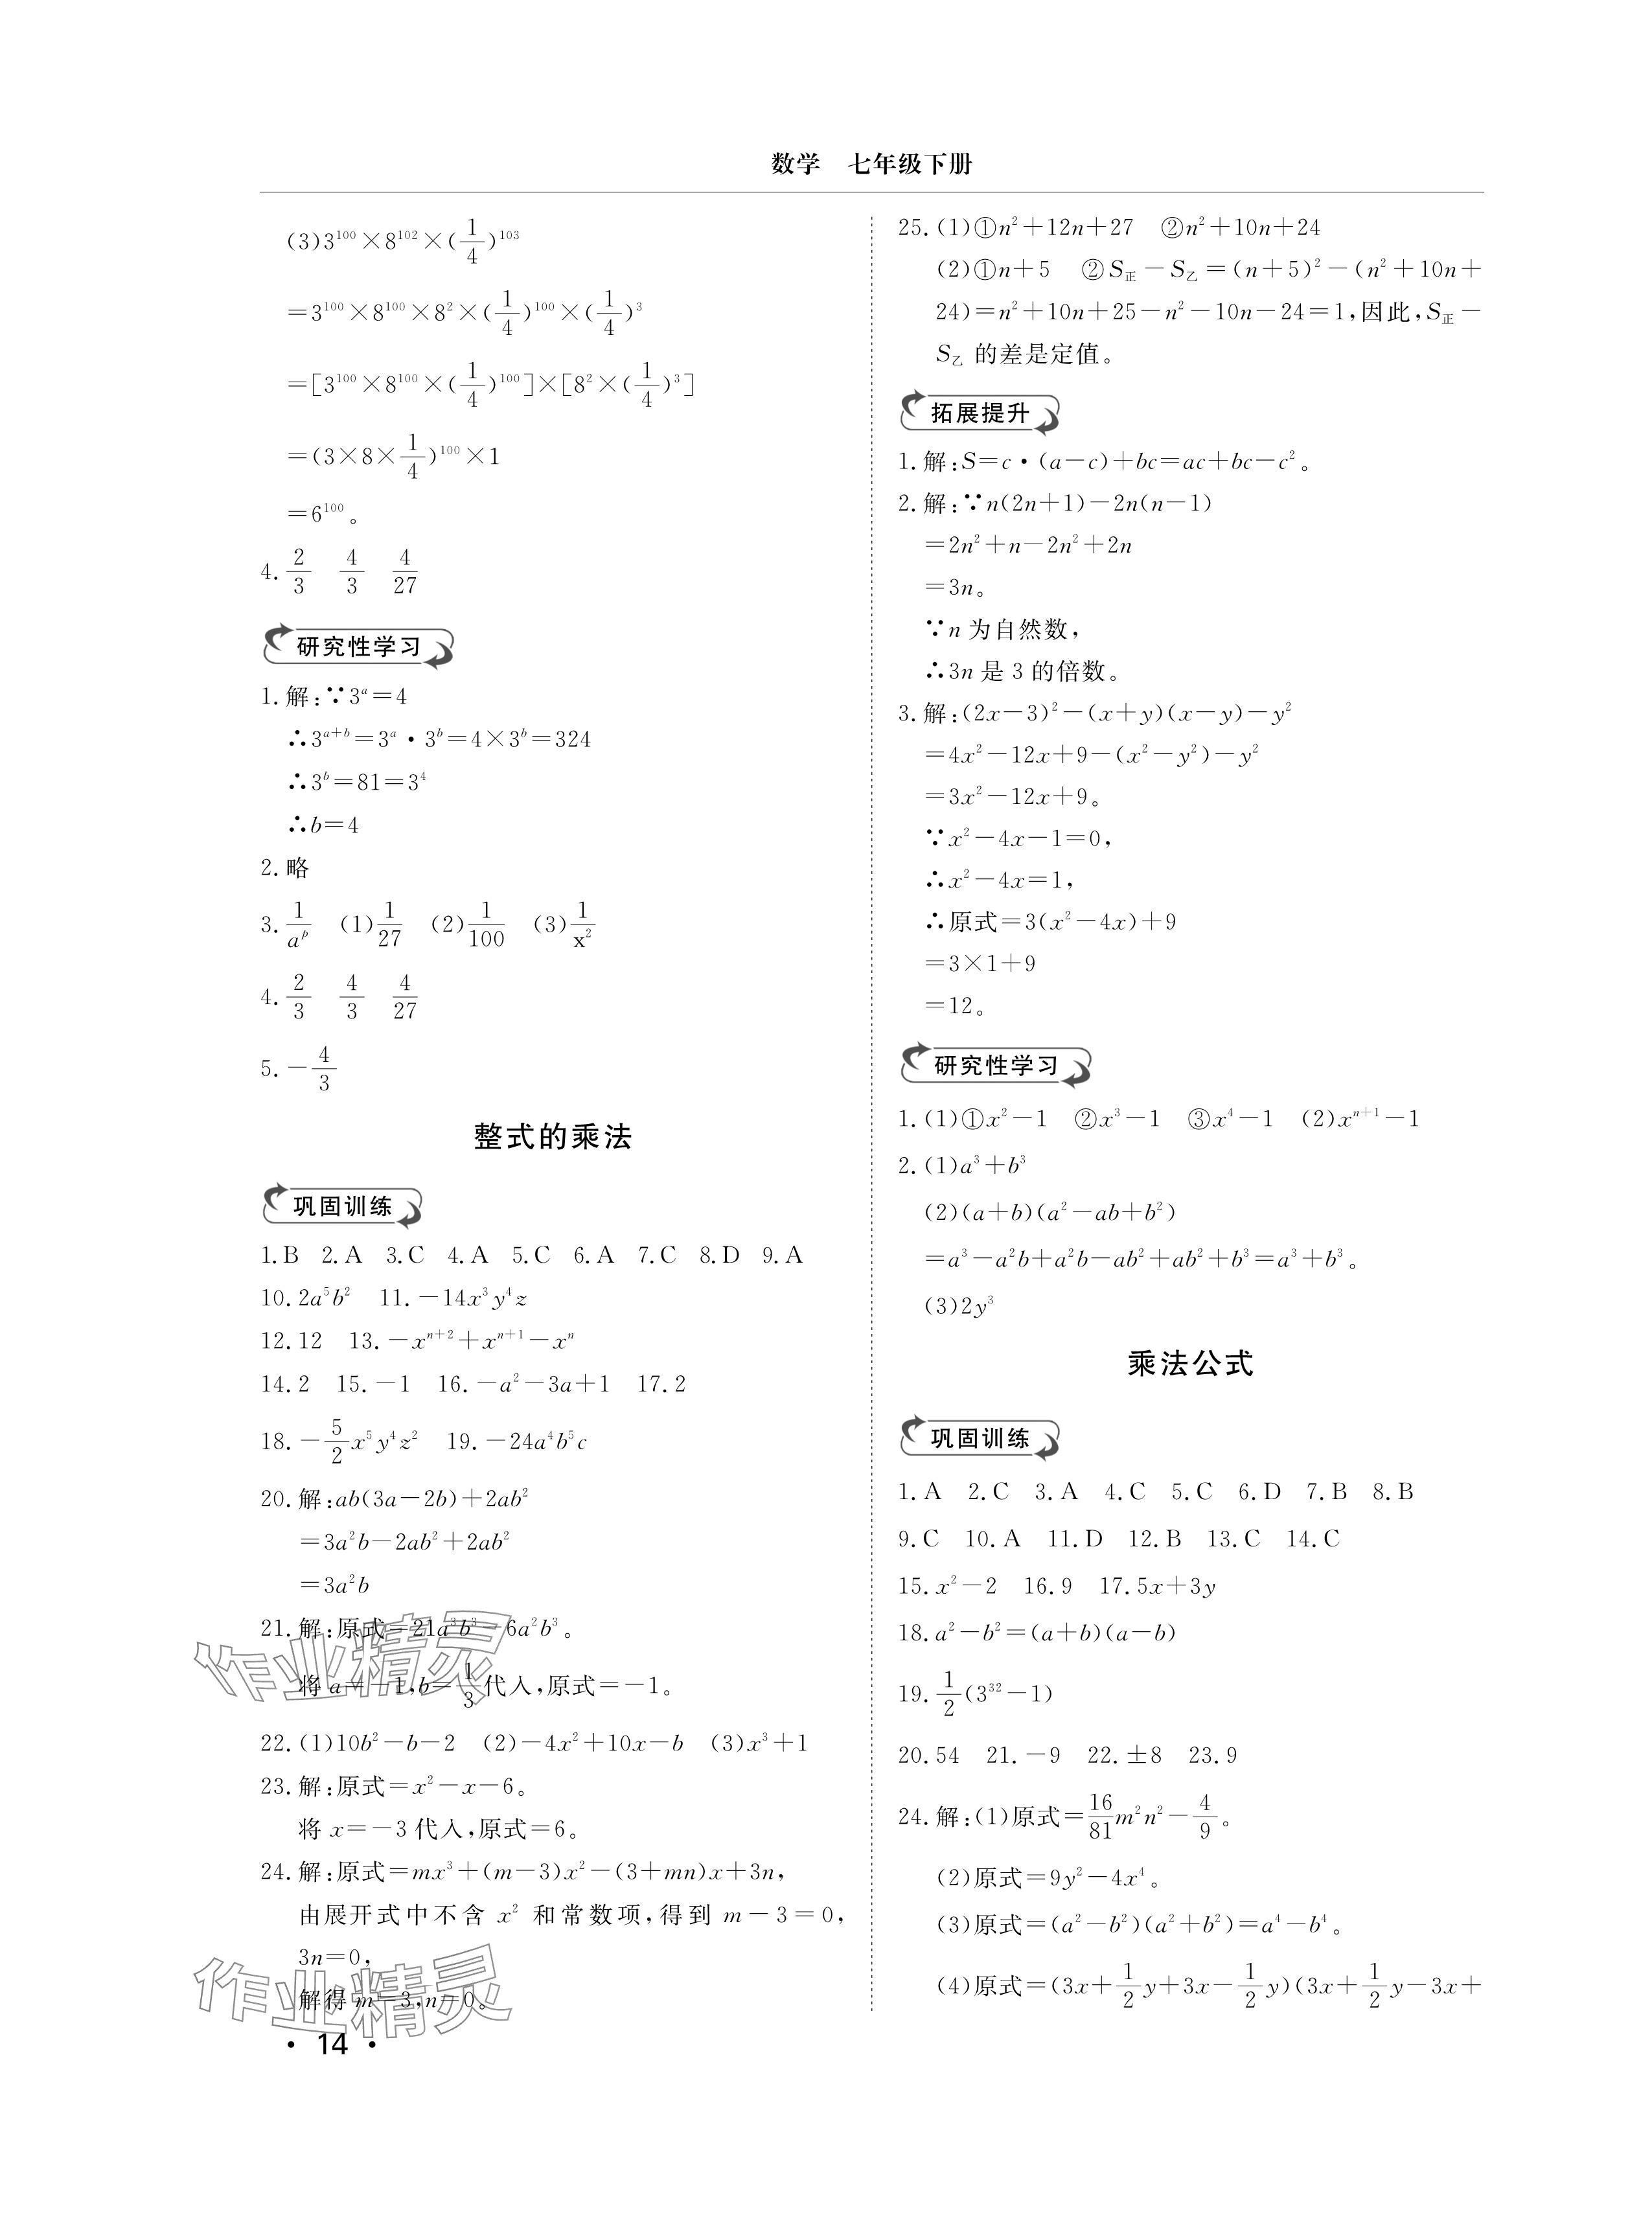 数学 七年级下册
(3)3¹⁰⁰×8¹⁰²×(1/4)¹⁰³
=3¹⁰⁰×8¹⁰⁰×8²×(1/4)¹⁰⁰×(1/4)³
=[3¹⁰⁰×8¹⁰⁰×(1/4)¹⁰⁰]×[8²×(1/4)³]
=(3×8×1/4)¹⁰⁰×1
=6¹⁰⁰。
4. 2/3 4/3 4/27
研究性学习
1. 解:∵3ᵃ=4
∴3ᵃ⁺ᵇ=3ᵃ·3ᵇ=4×3ᵇ=324
∴3ᵇ=81=3⁴
∴b=4
2. 略
3. 1/aᵖ (1)1/27 (2)1/100 (3)1/x²
4. 2/3 4/3 4/27
5. -4/3
整式的乘法
巩固训练
1. B 2. A 3. C 4. A 5. C 6. A 7. C 8. D 9. A
10. 2a⁵b² 11. -14x³y⁴z
12. 12 13. -xⁿ⁺²+xⁿ⁺¹-xⁿ
14. 2 15. -1 16. -a²-3a+1 17. 2
18. -5/2x⁵y⁴z² 19. -24a⁴b⁵c
20. 解:ab(3a-2b)+2ab²
=3a²b-2ab²+2ab²
=3a²b
21. 解:原式=21a³b³-6a²b³。
将 a=-1,b=1/3代入,原式=-1。
22. (1)10b²-b-2 (2)-4x²+10x-b (3)x³+1
23. 解:原式=x²-x-6。
将 x=-3 代入,原式=6。
24. 解:原式=mx³+(m-3)x²-(3+mn)x+3n,
由展开式中不含 x² 和常数项,得到 m-3=0,
3n=0,
解得 m=3,n=0。
25. (1)①n²+12n+27 ②n²+10n+24
(2)①n+5 ②S正-S乙=(n+5)²-(n²+10n+
24)=n²+10n+25-n²-10n-24=1,因此,S正-
S乙 的差是定值。
拓展提升
1. 解:S=c·(a-c)+bc=ac+bc-c²。
2. 解:∵n(2n+1)-2n(n-1)
=2n²+n-2n²+2n
=3n。
∵n 为自然数,
∴3n 是 3 的倍数。
3. 解:(2x-3)²-(x+y)(x-y)-y²
=4x²-12x+9-(x²-y²)-y²
=3x²-12x+9。
∵x²-4x-1=0,
∴x²-4x=1,
∴原式=3(x²-4x)+9
=3×1+9
=12。
研究性学习
1. (1)①x²-1 ②x³-1 ③x⁴-1 (2)xⁿ⁺¹-1
2. (1)a³+b³
(2)(a+b)(a²-ab+b²)
=a³-a²b+a²b-ab²+ab²+b³=a³+b³。
(3)2y³
乘法公式
巩固训练
1. A 2. C 3. A 4. C 5. C 6. D 7. B 8. B
9. C 10. A 11. D 12. B 13. C 14. C
15. x²-2 16. 9 17. 5x+3y
18. a²-b²=(a+b)(a-b)
19. 1/2(3³²-1)
20. 54 21. -9 22. ±8 23. 9
24. 解:(1)原式=16/81m²n²-4/9。
(2)原式=9y²-4x⁴。
(3)原式=(a²-b²)(a²+b²)=a⁴-b⁴。
(4)原式=(3x+1/2y+3x-1/2y)(3x+1/2y-3x+
作业精灵
作业精灵
· 14 ·